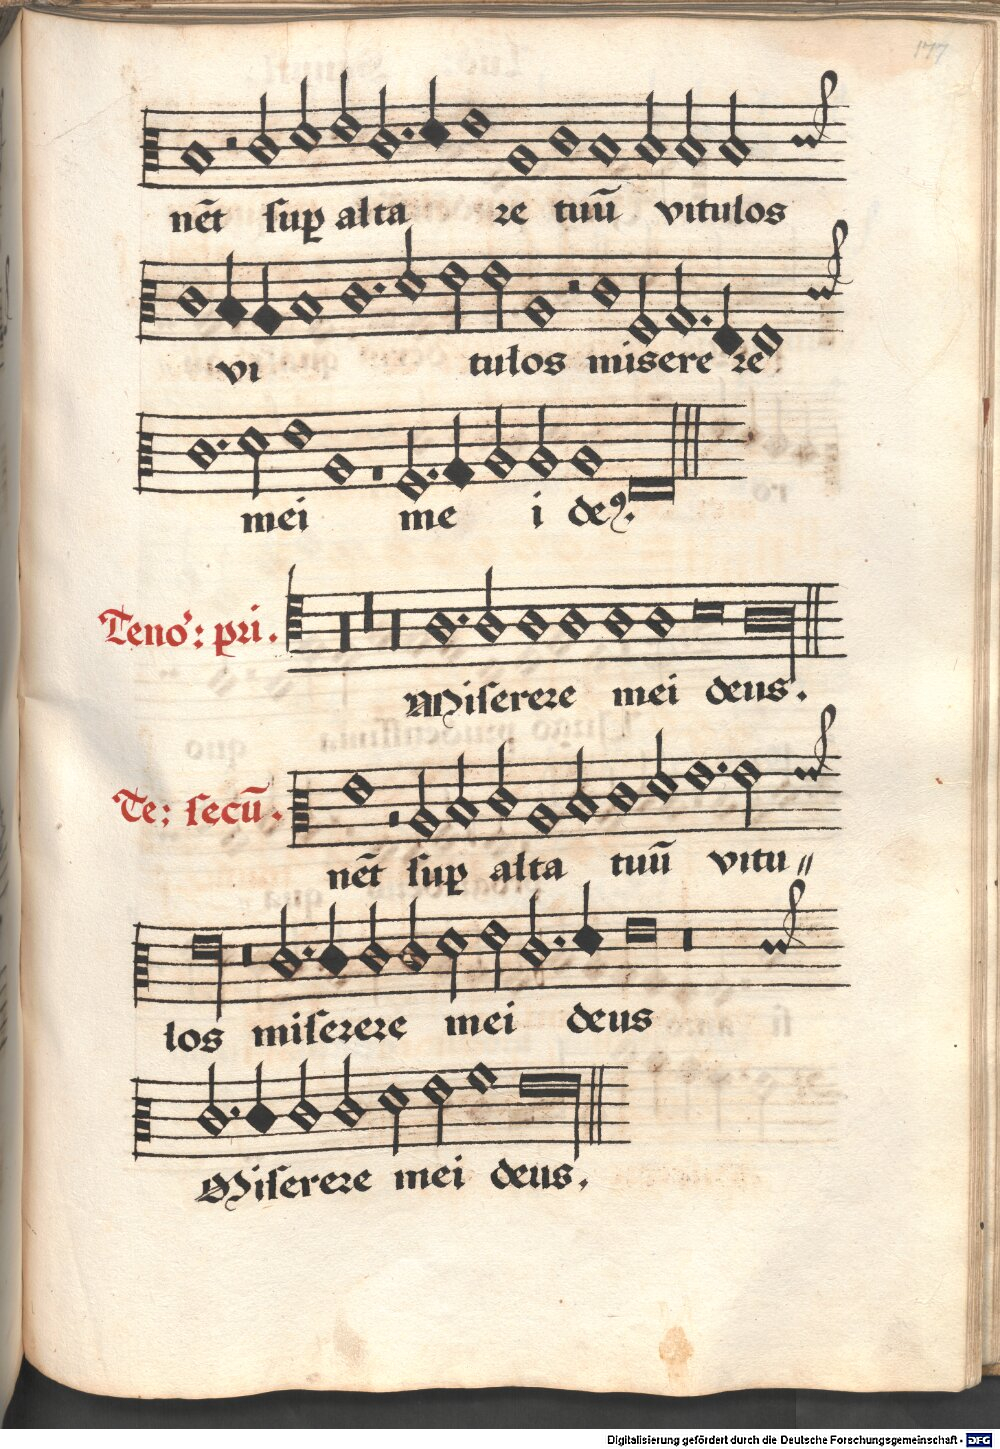 177
nēt sup alta re tuū vitulos
vi tulos miserere re
mei me i deꝰ.
Teno': pri.
Miserere mei deus.
Te: secū.
nēt sup alta tuū vitu〃
los miserere mei deus
Miserere mei deus.
Digitalisierung gefördert durch die Deutsche Forschungsgemeinschaft - DFG